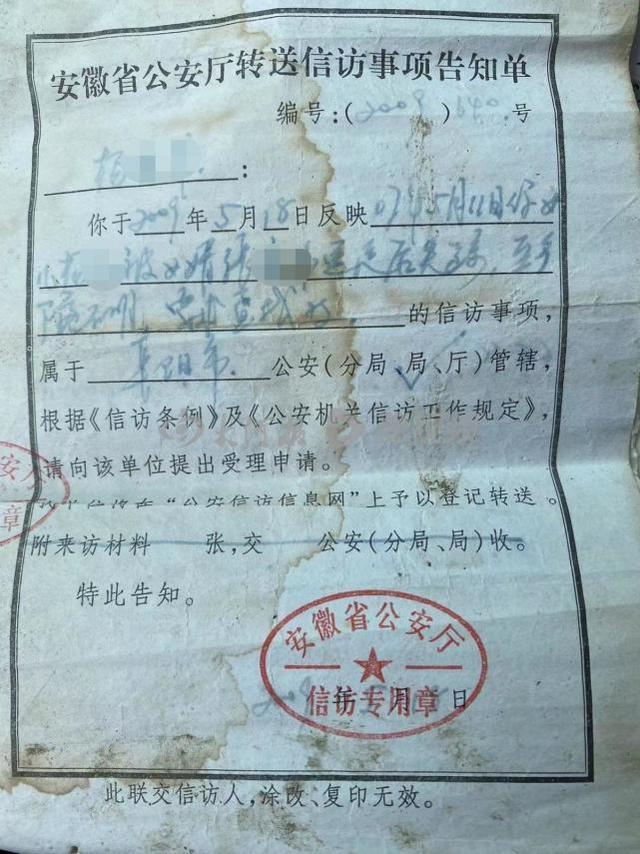 安徽省公安厅转送信访事项告知单
编号:(2009)640号
:
你于2009年5月18日反映07年5月11日你女
儿被女婿张后失踪,至今
下落不明,要求查找的信访事项,
属于阜阳市公安(分局、局、厅)管辖,
根据《信访条例》及《公安机关信访工作规定》,
请向该单位提出受理申请。
“公安信访信息网”上予以登记转送。
附来访材料 张,交 公安(分局、局)收。
特此告知。
安徽省公安厅
信访专用章
2009年 月 日
公安厅
章
此联交信访人,涂改、复印无效。